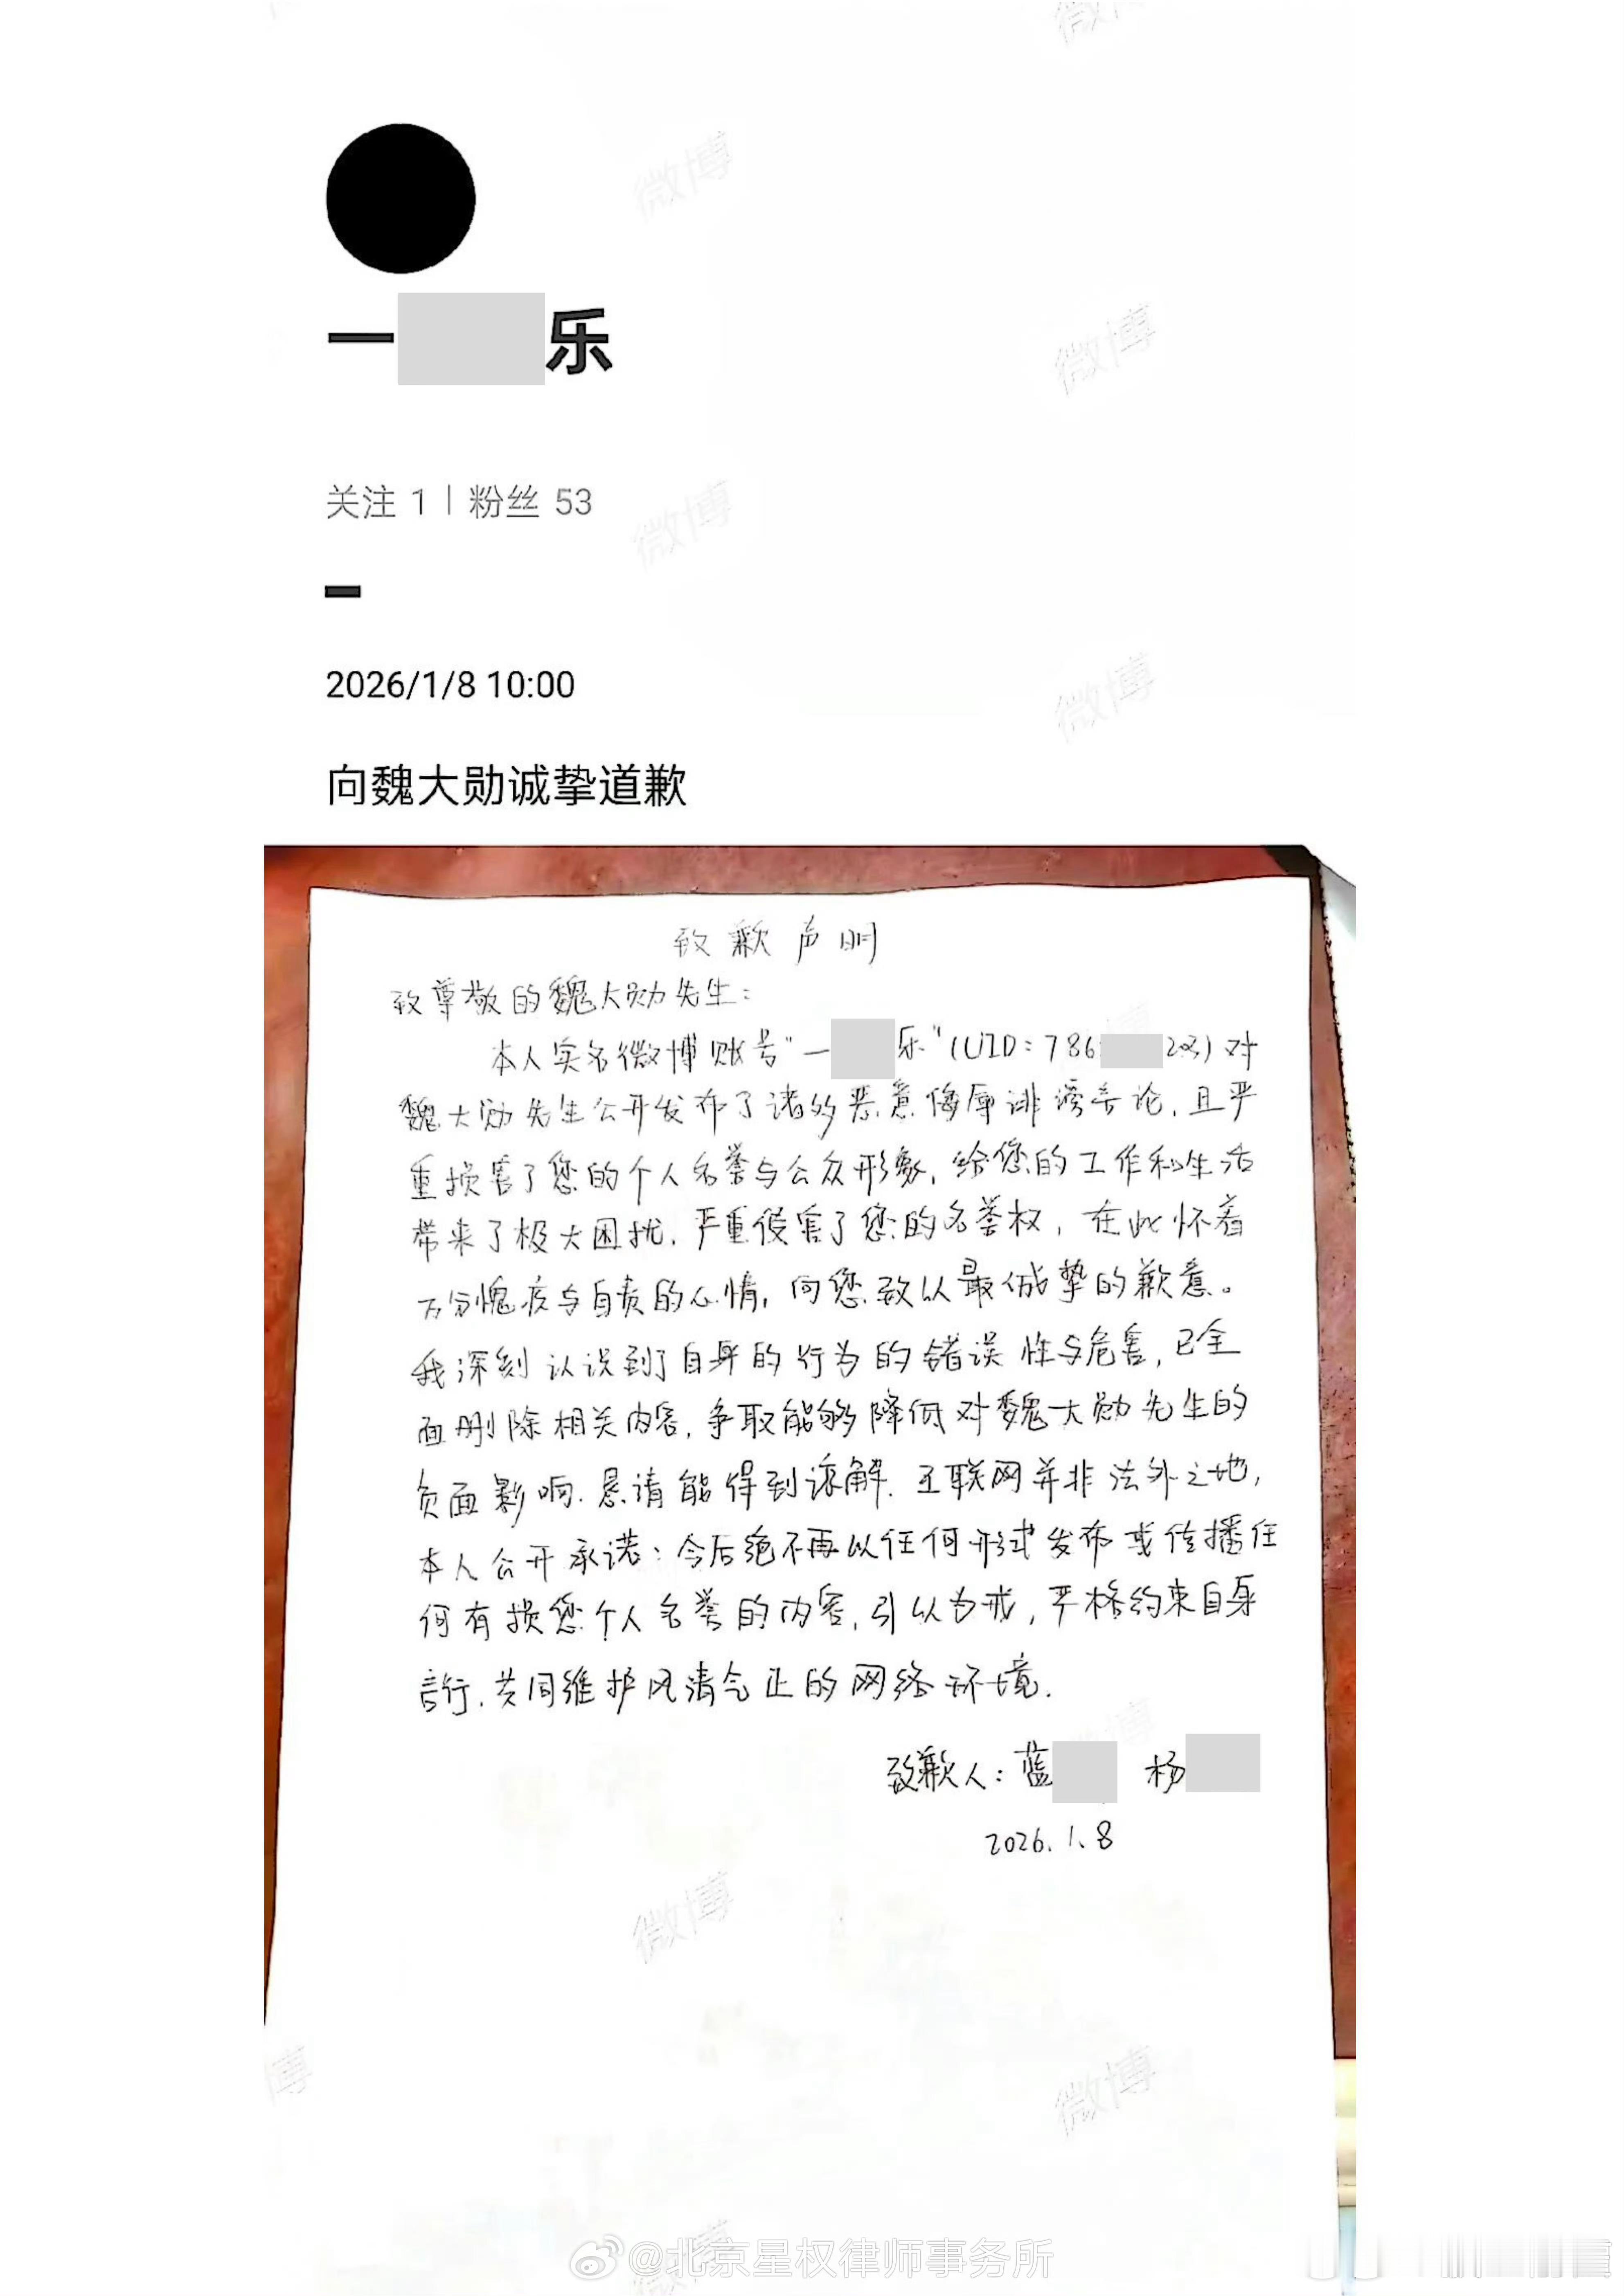 一 乐
关注 1 | 粉丝 53
2026/1/8 10:00
向魏大勋诚挚道歉
致歉声明
致尊敬的魏大勋先生：
本人实名微博账号“一 乐”(UID：786 28)对
魏大勋先生公开发布了诸多恶意侮辱诽谤言论，且严
重损害了您的个人名誉与公众形象，给您的工作和生活
带来了极大困扰，严重侵害了您的名誉权，在此怀着
万分愧疚与自责的心情，向您致以最诚挚的歉意。
我深刻认识到了自身的行为的错误性与危害，已全
面删除相关内容，争取能够降低对魏大勋先生的
负面影响．恳请能得到谅解．互联网并非法外之地，
本人公开承诺：今后绝不再以任何形式发布或传播任
何有损您个人名誉的内容，引以为戒，严格约束自身
言行．共同维护风清气正的网络环境．
致歉人：蓝 杨
2026.1.8
微博
@北京星权律师事务所